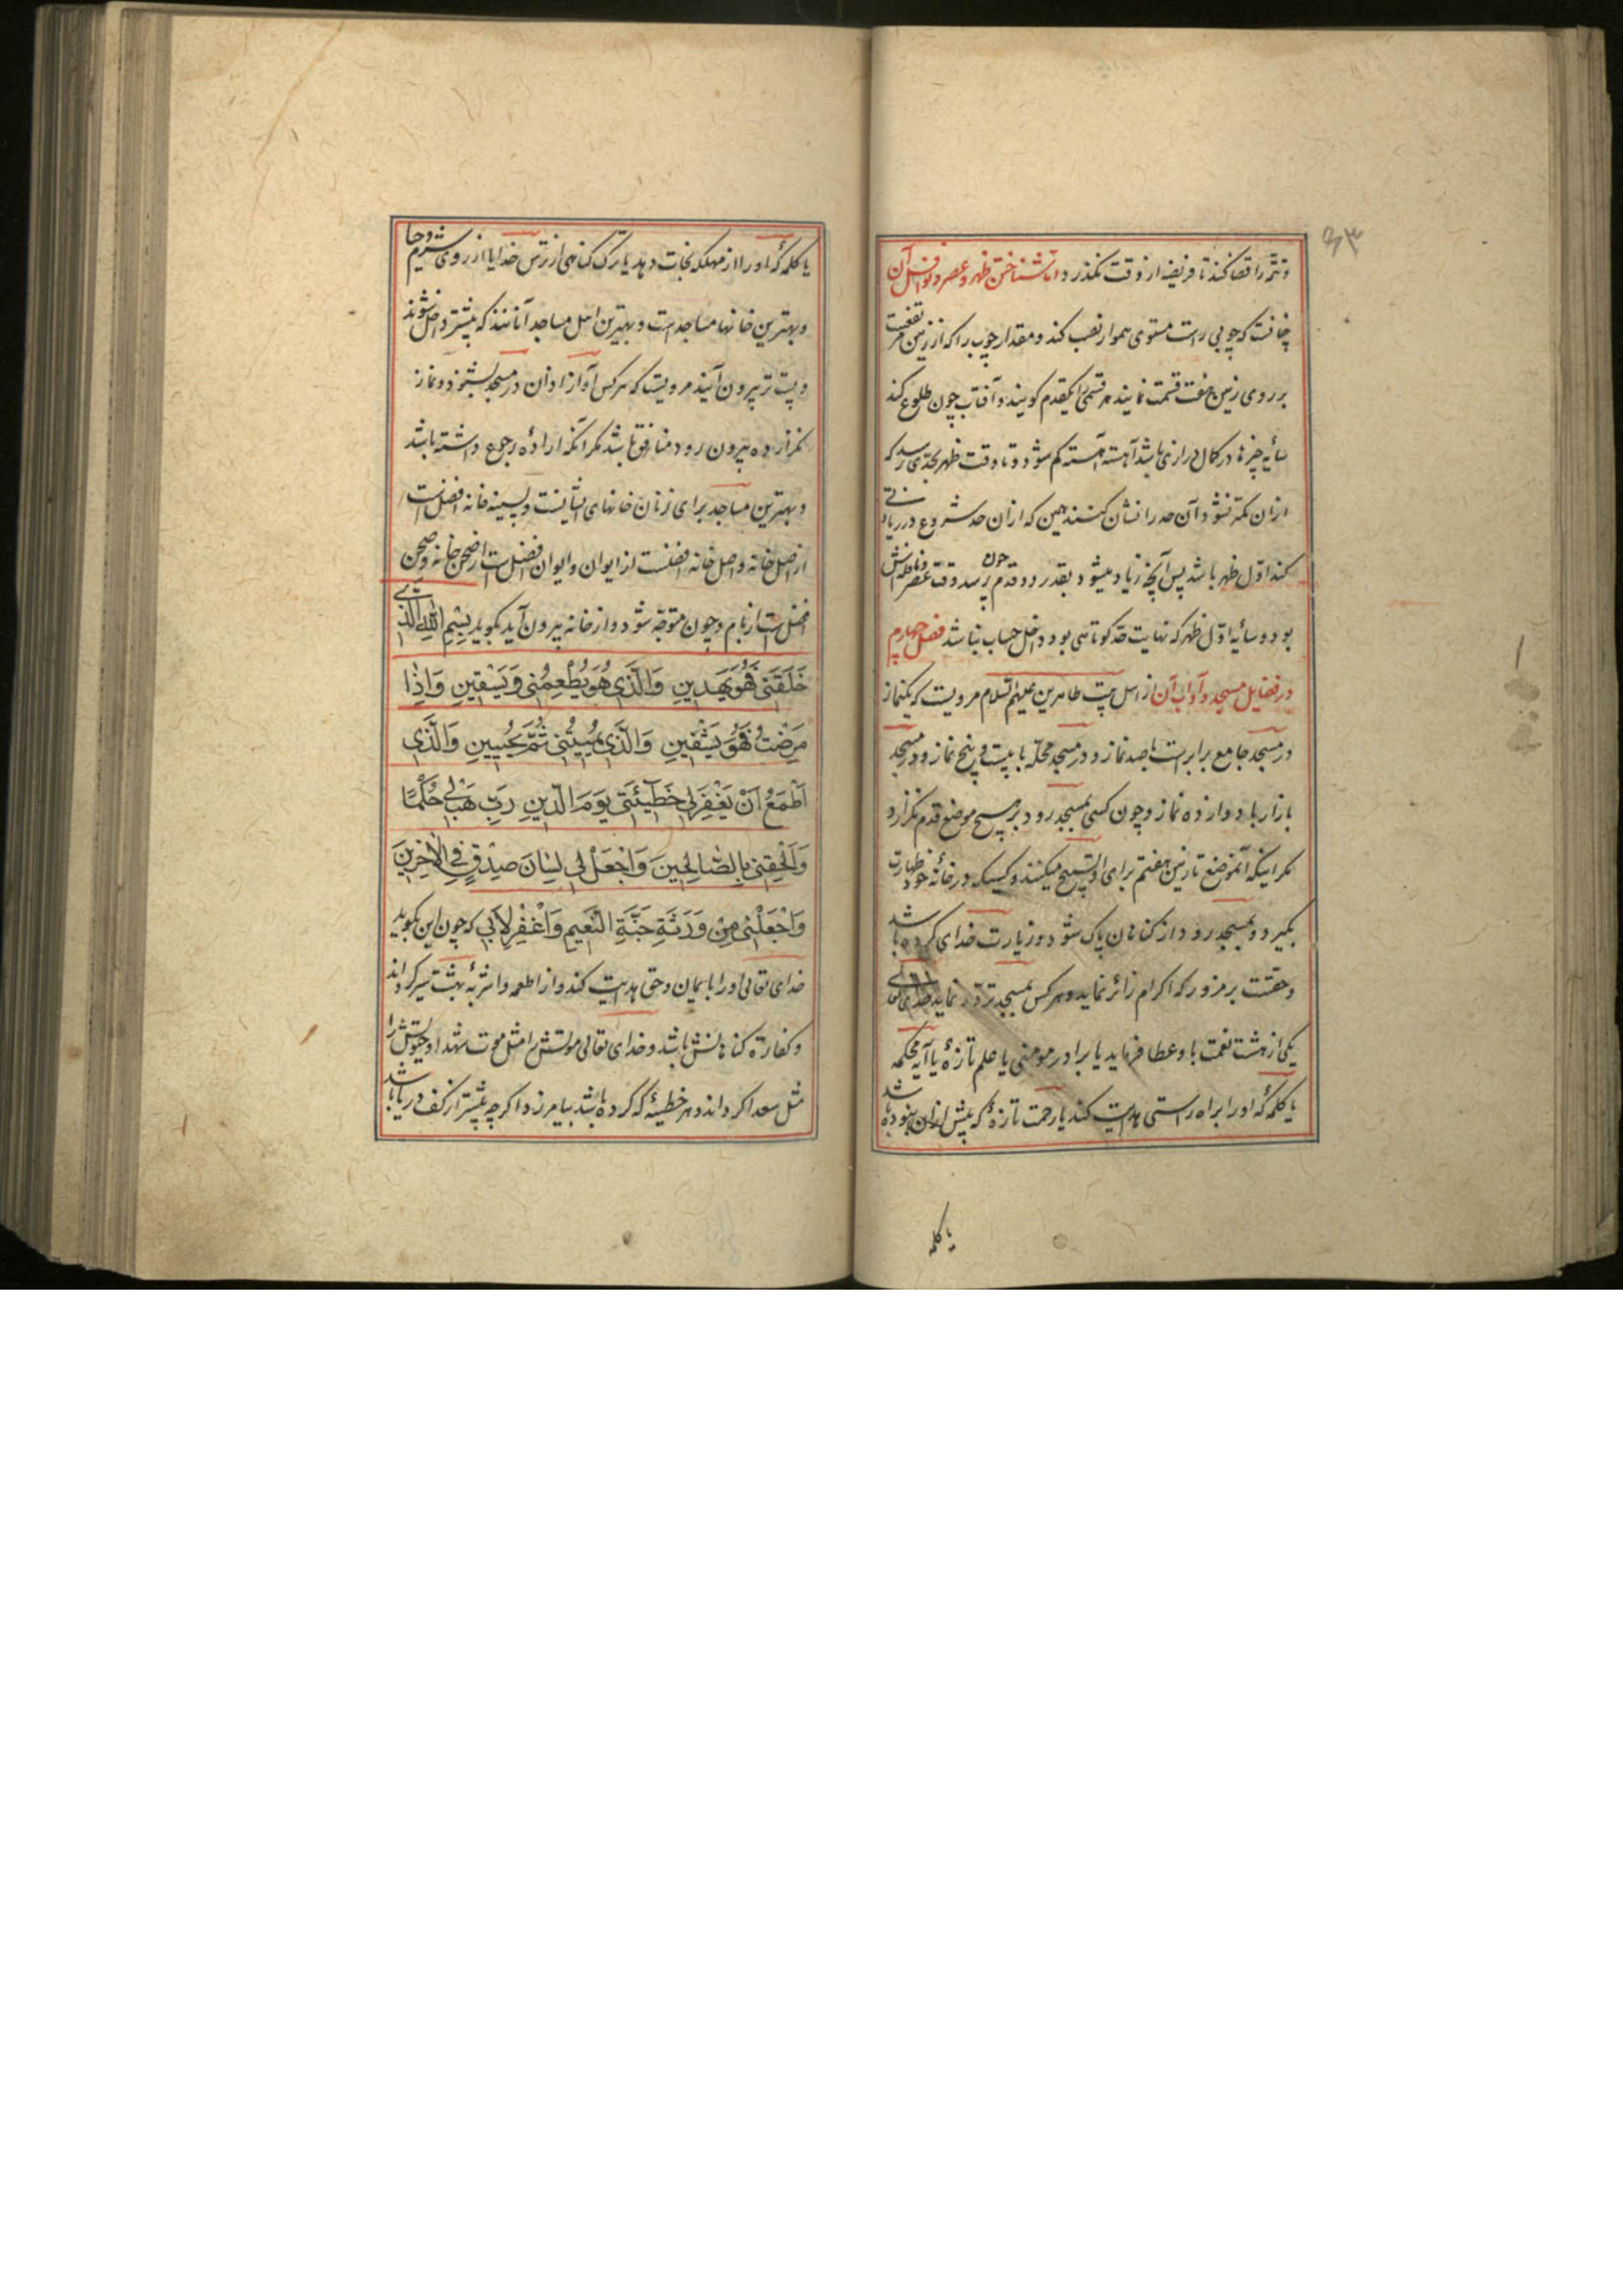 ۶۳
و تتمّه را قضا کند تا فریضه از وقت نکذرد و اما شناختن ظهر و عصر و نوافل آن
چنانست که چوبی راست مستوی هموار نصب کند و مقدار چوب را که از زمین مرتفعست
بر روی زمین هفت قسمت نمایند هر قسمی را یکقدم کویند و آفتاب چون طلوع کند
سایهٔ چیزها در کمال درازی باشد آهسته آهسته کم شود و تا وقت ظهر بحدّی رسد که
از ان کمتر نشود آن حد را نشان کنند همین که از ان حد شروع در زیادتی
کند اوّل ظهر باشد پس آنچه زیاد میشود بقدر دو قدم چون رسد وقت عصر و نافله‌اش
بود و سایهٔ اوّل ظهر که نهایت حدّ کوتاهی بود داخل حساب نباشد فصل چهارم
در فضایل مسجد و آداب آن از اهل بیت طاهرین علیهم السلام مرویست که یکنماز
در مسجد جامع برابرست باصد نماز و در مسجد محلّه با بیست و پنج نماز و در مسجد
بازار با دوازده نماز و چون کسی بمسجد رود بر هیچ موضع قدم نکزارد
مکر اینکه آنموضع تا زمین هفتم برای او تسبیح میکنند و کسیکه در خانهٔ خود طهارت
بکیرد و بمسجد رود از کناهان پاک شود و زیارت خدای کرده باشد
و حقست بر مزور که اکرام زائر نماید و هر کس بمسجد تردّد نماید خدای تعالی
یکی از هشت نعمت باو عطا فرماید یا برادر مومنی یا علم تازهٔ یا آیه محکمه
یا کلمهٔ که او را براه راستی هدایت کند یا رحمت تازهٔ که پیش از ان نبوده باشد
یا کلمه
یا کلمهٔ که او را از مهلکه نجات دهد یا ترک کناهی از ترس خدا یا از روی شرم و حیا
و بهترین خانها مساجد است و بهترین اهل مساجد آنانند که پیشتر داخل شوند
و پست‌تر بیرون آیند مرویست که هر کس آواز اذان در مسجد بشنود و نماز
نکزارده بیرون رود منافق باشد مکر انکه ارادهٔ رجوع داشته باشد
و بهترین مساجد برای زنان خانهای ایشانست و پسینه خانه افضلست
از اصل خانه و اصل خانه افضلست از ایوان و ایوان افضل است از صحن خانه و صحن
افضل است از بام و چون متوجّه شود و از خانه بیرون آید بکوید بِسْمِ اللهِ الَّذی
خَلَقَنی فَهُوَ یَهْدِینِ وَالَّذی هُوَ یُطْعِمُنی وَیَسْقِینِ وَاِذٰا
مَرِضْتُ فَهُوَ یَشْفِینِ وَالَّذی یُمِیتُنی ثُمَّ یُحْیِینِ وَالَّذی
اَطْمَعُ اَنْ یَغْفِرَ لی خَطیٓئَتی یَوْمَ الدّینِ رَبِّ هَبْ لی حُکْمًا
وَاَلْحِقْنی بِالصّٰالِحینَ وَاجْعَلْ لی لِسٰانَ صِدْقٍ فِی الْاٰخِرینَ
وَاجْعَلْنی مِنْ وَرَثَةِ جَنَّةِ النَّعیمِ وَاغْفِرْ لِاَبی که چون این بکوید
خدای تعالی او را بایمان و حق هدایت کند و از اطعمه و اشربهٔ بهشت سیر کرداند
و کفارهٔ کناهانش باشد و خدای تعالی موتش را مثل موت شهدا و حیوتش را
مثل سعدا کرداند و هر خطیئهٔ که کرده باشد بیامرزد اکر چه بیشتر از کف دریا باشد